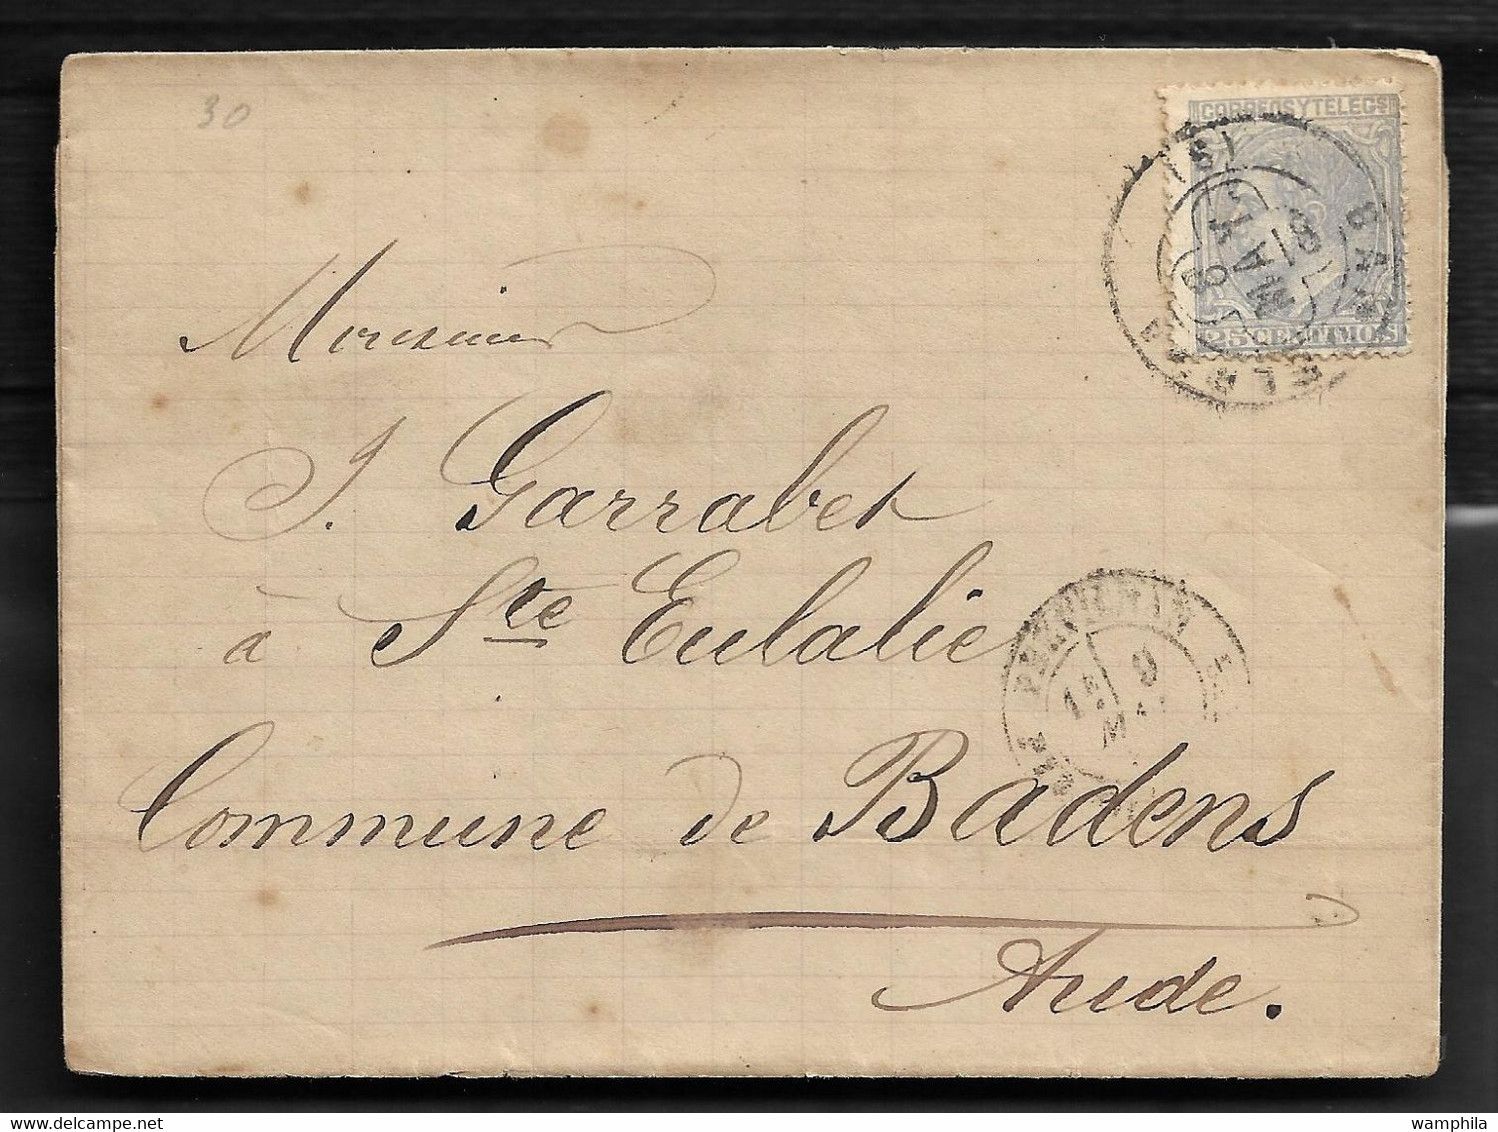 30
CORREOS Y TELEGS
25 CENTIMOS
BARCELONA
(S)
8 MAR 81
Monsieur
J. Garrabet
à Ste Eulalie
Commune de Badens
Aude.
PERPIGNAN
1E 9
wamphila